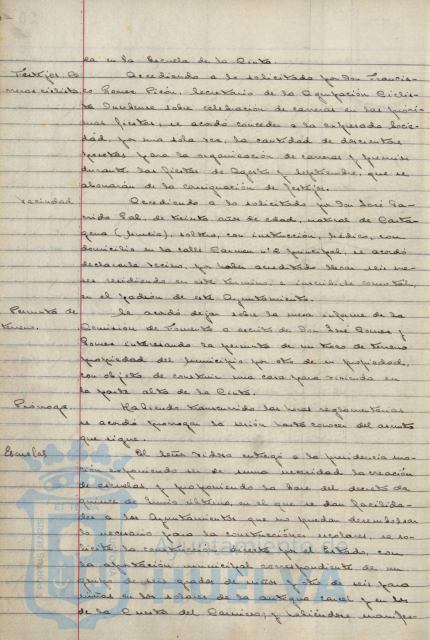 ca en la Escuela de la Cinta.
Festejos. Ca- Accediendo a lo solicitado por Don Francis-
rreras ciclistas co Gomez Picón, Secretario de la Agrupación Ciclis-
ta Onubense sobre celebración de carreras en las próxi-
mas fiestas, se acordó conceder a la expresada Socie-
dad, por una sola vez, la cantidad de doscientas
pesetas para la organización de carreras y premios
durante las fiestas de Agosto y Septiembre, que se
abonarán de la consignación de festejos.
Vecindad Accediendo a lo solicitado por Don José Ga-
rrido Gal, de treinta años de edad, natural de Carta-
gena (Murcia), soltero, con instrucción, médico, con
domicilio en la calle Carmen nº 2 principal, se acordó
declararle vecino, por haber acreditado llevar seis me-
ses residiendo en este término, e inscribirle como tal
en el padrón de este Ayuntamiento.
Permuta de Se acordó dejar sobre la mesa informe de la
terreno. Comision de Fomento a escrito de Don José Gomez y
Gomez interesando la permuta de un trozo de terreno
propiedad del municipio por otro de su propiedad,
con objeto de construir una casa para vivienda en
la parte alta de la Cinta.
Prórroga. Habiendo transcurrido las horas reglamentarias
se acordó prorrogar la sesión hasta conocer del asunto
que sigue.
Escuelas El Señor entregó a la presidencia mo-
ción exponiendo ser de suma necesidad la creación
de escuelas, y proponiendo la base del decreto de
quince de Junio último, en el que se dan facilida-
des a los Ayuntamientos que no puedan desembolsar
lo necesario para las construcciones escolares, se so-
licite la construcción directa por el Estado, con
la aportación municipal correspondiente de un
grupo de seis grados de niños y otro de seis para
niñas en los solares de la antigua carcel y en los
de la Cuesta del Carnicero; y habiéndose manifes-